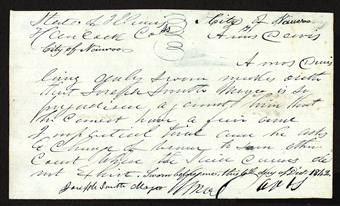 State of Illinois } City of Nauvoo
Hancock Co } vs
City of Nauvoo } Amos Davis
Amos Davis
being duly sworn maketh oath
that Joseph Smith Mayor is so
prejudiced against him that
he cannot have a fair and
impartial trial and he asks
a Change of venue to some other
Court where the said causes do
not exist. Sworn before me this 6th day of Dec. 1842
Joseph Smith Mayor Amos Davis